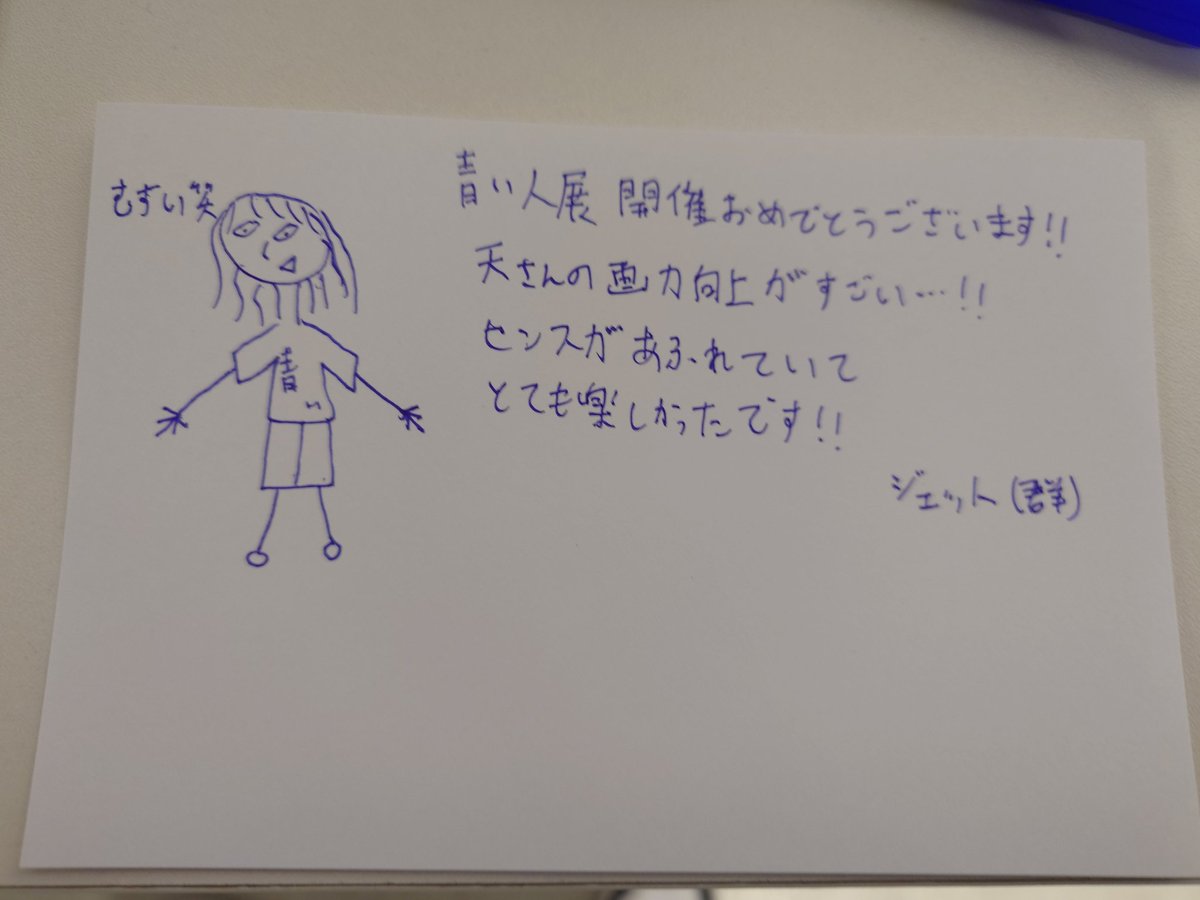 むずい笑
青い人展 開催おめでとうございます!!
天さんの画力向上がすごい…!!
センスがあふれていて
とても楽しかったです!!
青い
ジェット(群)